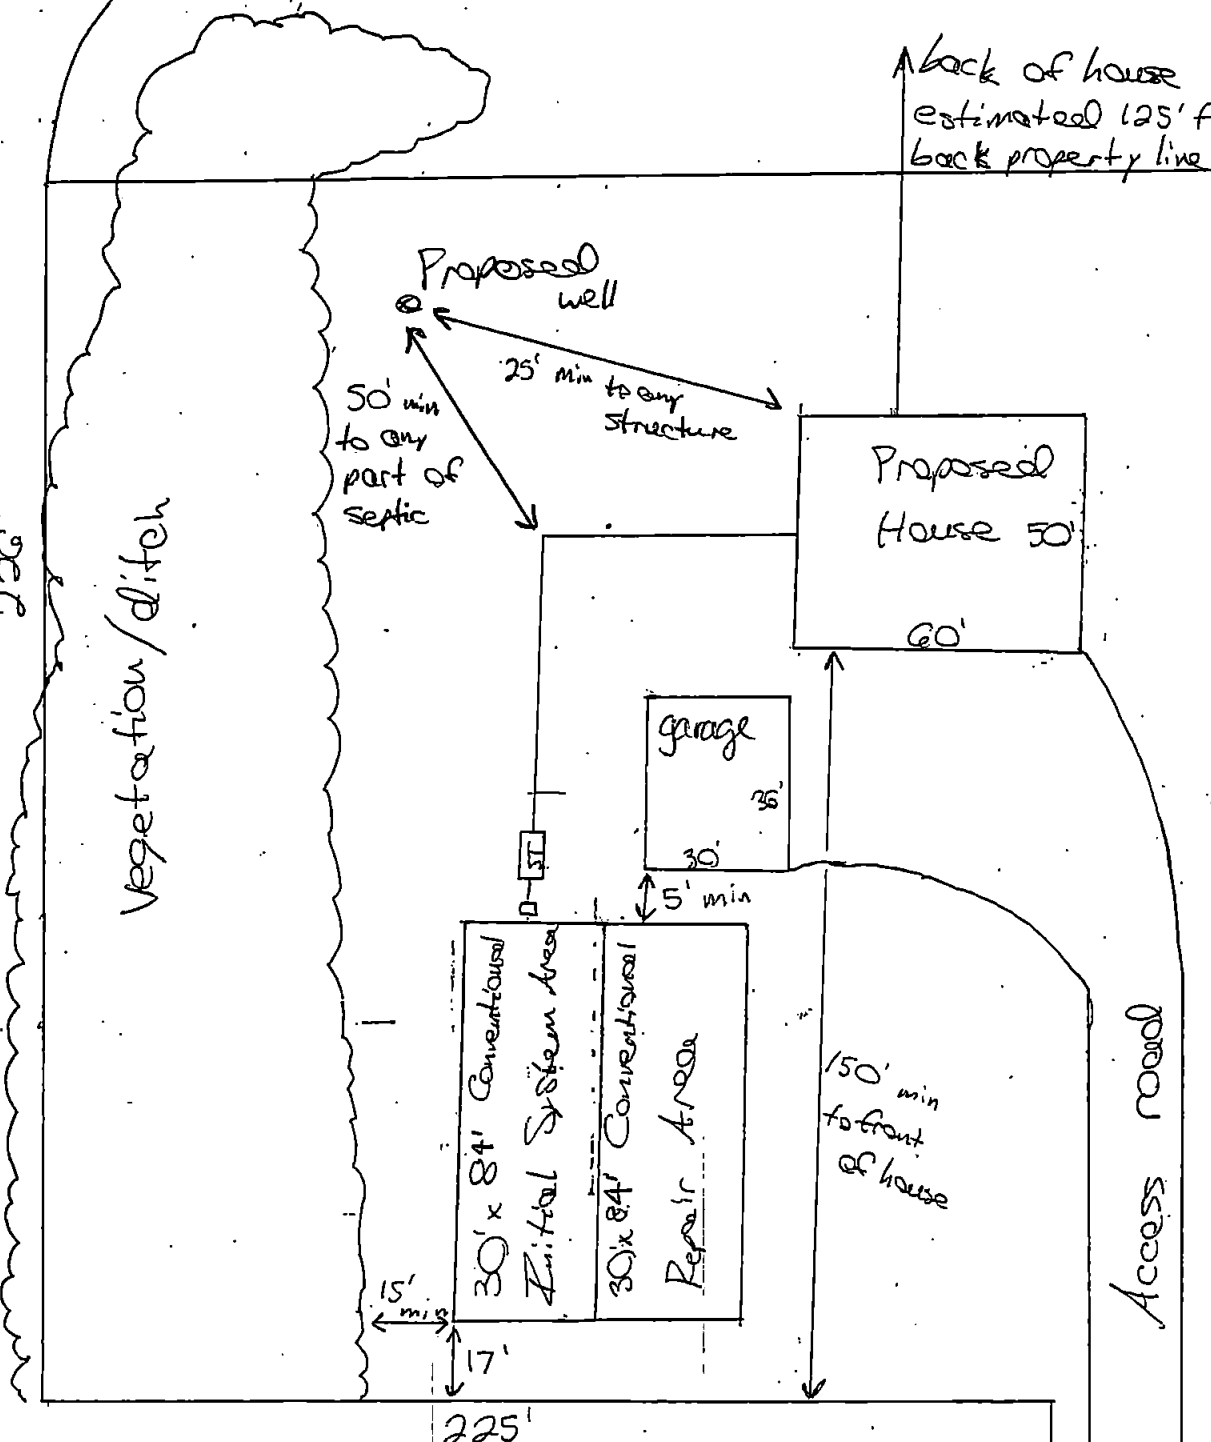 back of house
estimated 125' f
back property line
Proposed
well
25' min to any
structure
50' min
to any
part of
septic
Proposed
House 50'
60'
226'
vegetation/ditch
garage
36'
30'
ST
5' min
30' x 84' Conventional
Initial System Area
30' x 84' Conventional
Repair Area
150' min
to front
of house
Access road
15'
min
17'
225'